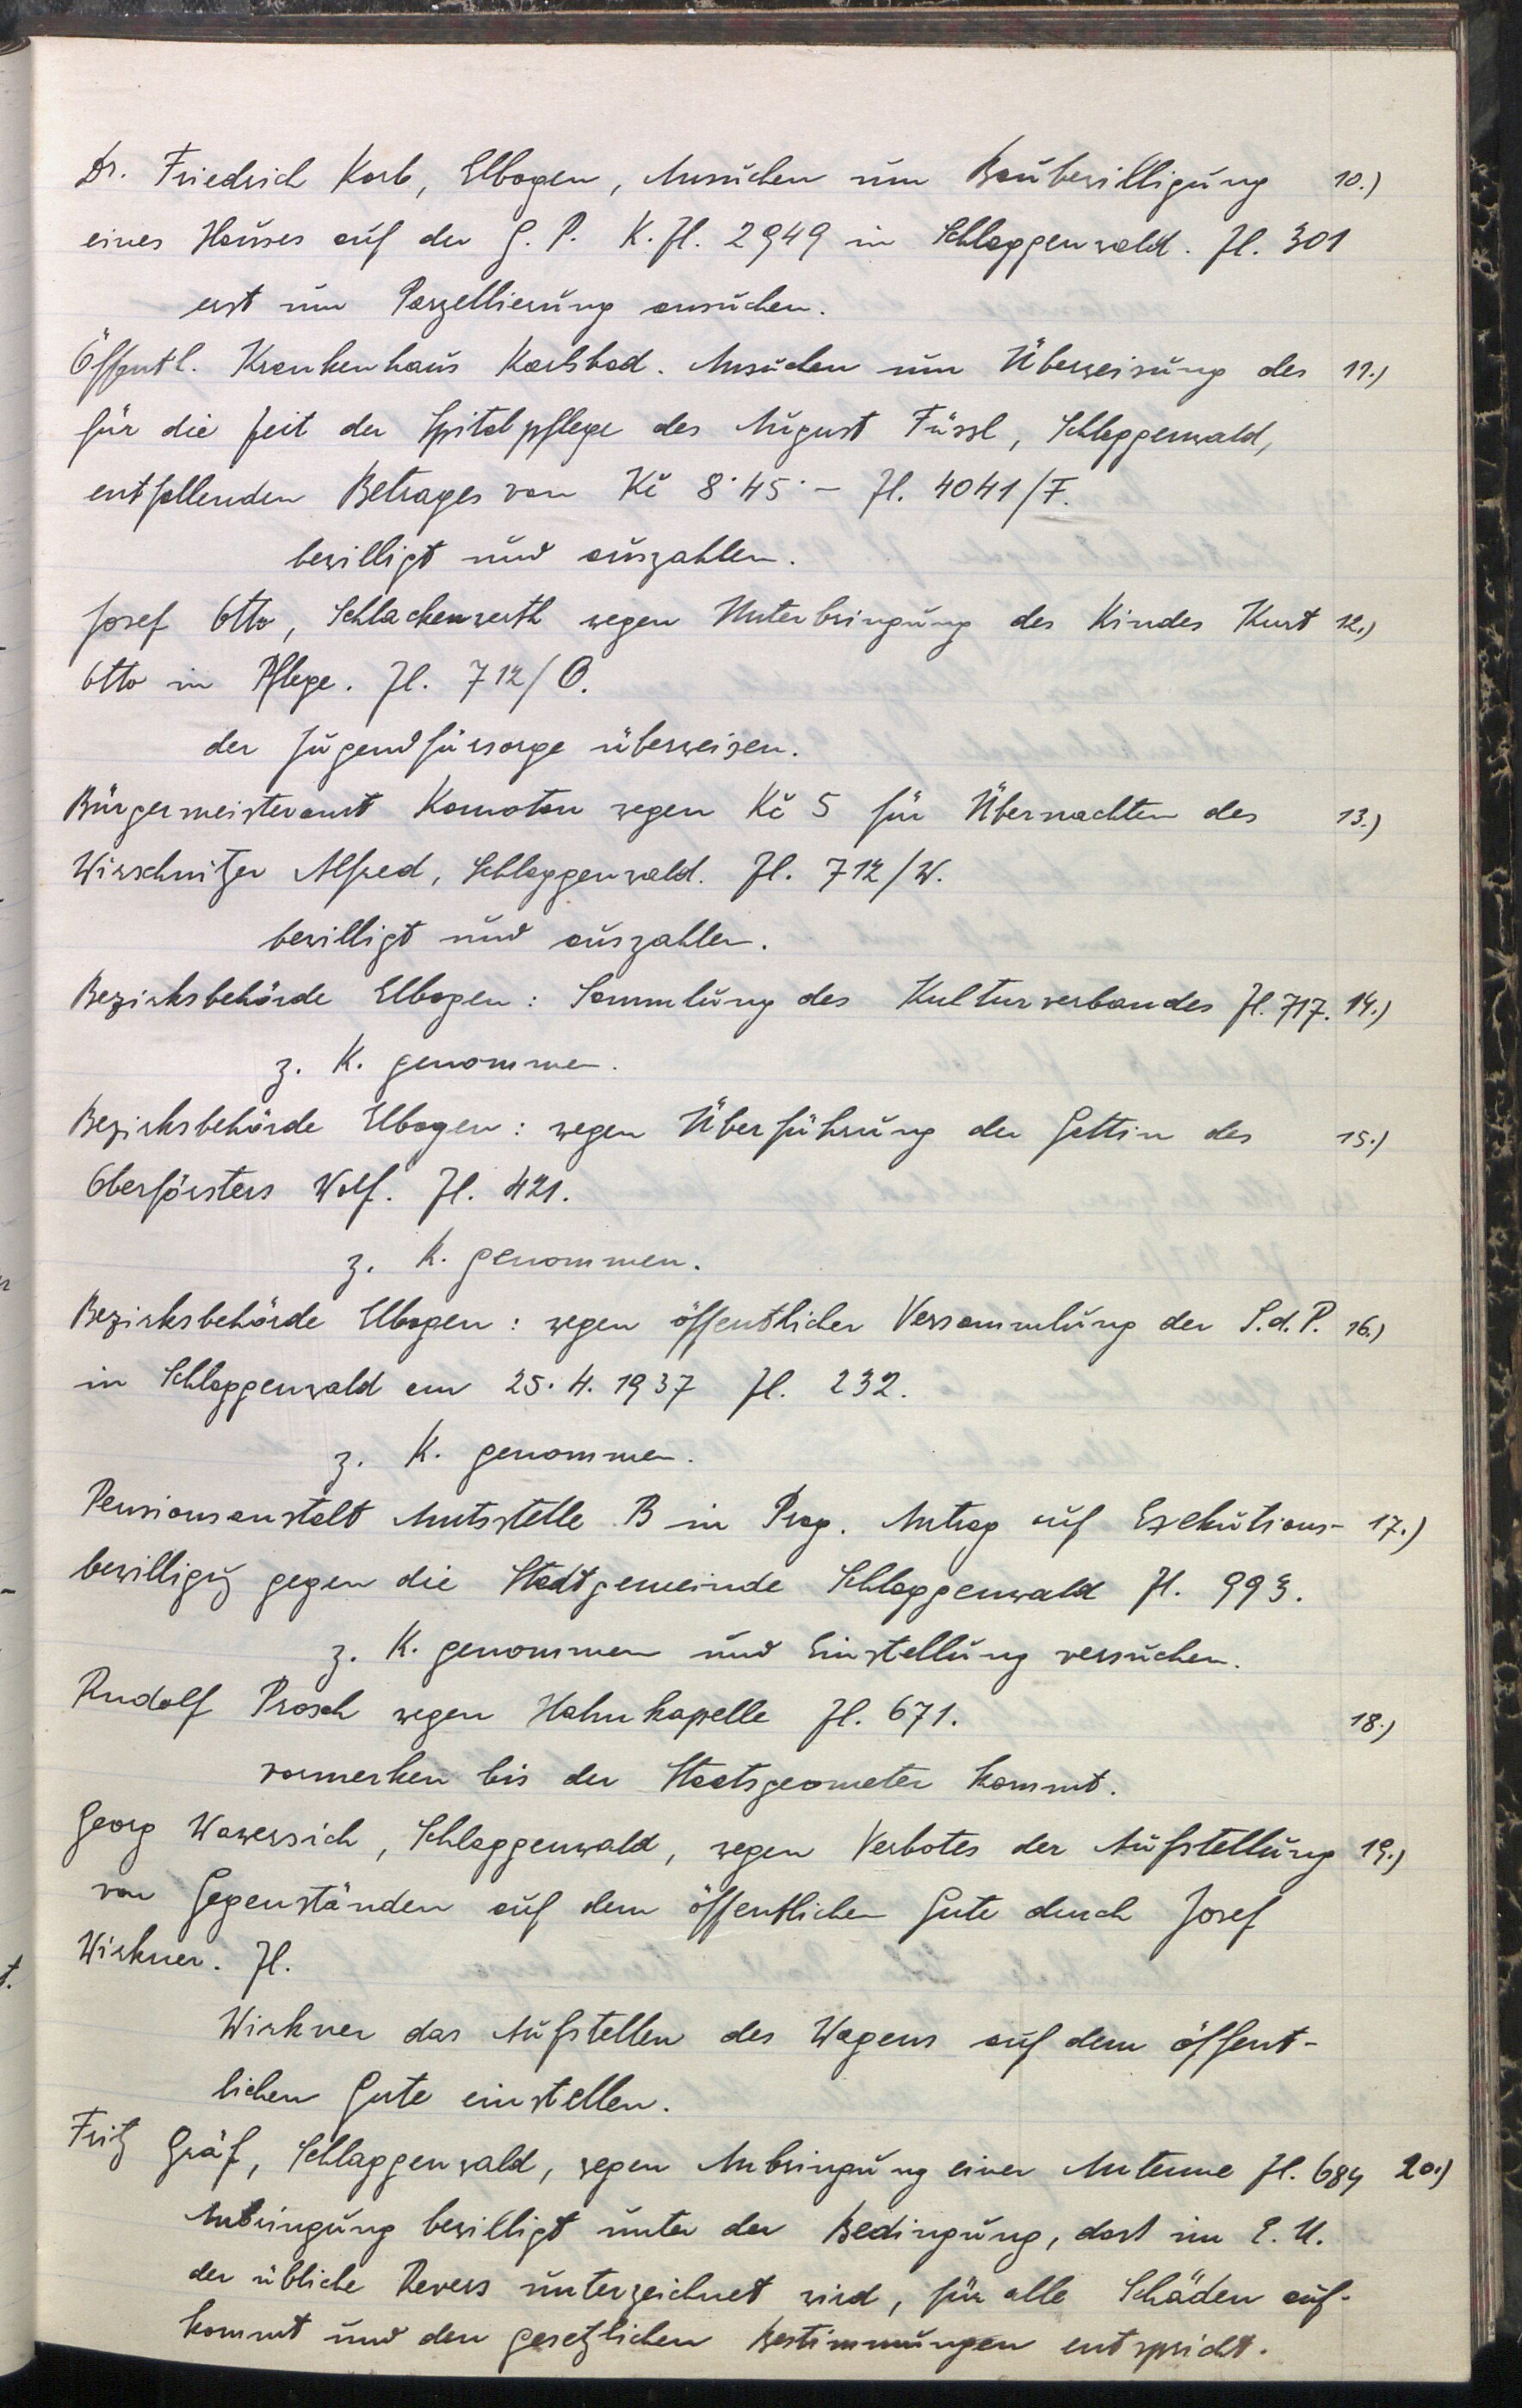 Dr. Friedrich Korb, Elbogen, Ansuchen um Baubewilligung 10.)
eines Hauses auf der G. P. K. Zl. 2949 in Schlaggenwald. Zl. 301
erst um Parzellierung ansuchen.
Öffentl. Krankenhaus Karlsbad. Ansuchen um Überweisung des 11.)
für die Zeit der Spitalpflege des August Füssl, Schlaggenwald,
entfallenden Betrages von Kč 8·45·- Zl. 4041/F.
bewilligt und auszahlen.
Josef Otto, Schlackenwerth wegen Unterbringung des Kindes Kurt 12.)
Otto in Pflege. Zl. 712/O.
der Jugendfürsorge überweisen.
Bürgermeisteramt Komotau wegen Kč 5 für Übernachten des 13.)
Wirschnitzer Alfred, Schlaggenwald. Zl. 712/W.
bewilligt und auszahlen.
Bezirksbehörde Elbogen: Sammlung des Kulturverbandes Zl. 717. 14.)
z. K. genommen.
Bezirksbehörde Elbogen: wegen Überführung der Gattin des 15.)
Oberförsters Wolf. Zl. 421.
z. K. genommen.
Bezirksbehörde Elbogen: wegen öffentlicher Versammlung der S.d.P. 16.)
in Schlaggenwald am 25. 4. 1937 Zl. 232.
z. K. genommen.
Pensionsanstalt Amtsstelle B in Prag. Antrag auf Exekutions- 17.)
bewilligg gegen die Stadtgemeinde Schlaggenwald Zl. 993.
z. K. genommen und Einstellung versuchen.
Rudolf Prosch wegen Hahnkapelle Zl. 671. 18.)
vormerken bis der Staatsgeometer kommt.
Georg Wawersich, Schlaggenwald, wegen Verbotes der Aufstellung 19.)
von Gegenständen auf dem öffentlichen Gute durch Josef
Wirkner. Zl.
Wirkner das Aufstellen des Wagens auf dem öffent-
lichen Gute einstellen.
Fritz Gräf, Schlaggenwald, wegen Anbringung einer Antenne Zl. 684 20.)
Anbringung bewilligt unter der Bedingung, dast im E. U.
der übliche Revers unterzeichnet wird, für alle Schäden auf-
kommt und den gesetzlichen Bestimmungen entspricht.